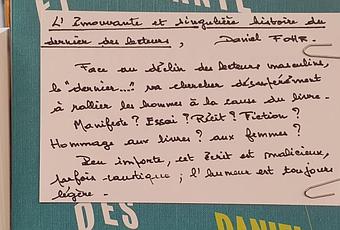 ANTE
L'Émouvante et singulière histoire du
dernier des lecteurs, Daniel FOHR.
Face au déclin des lecteurs masculins,
le "dernier..." va chercher désespérément
à rallier les hommes à la cause du livre.
Manifeste ? Essai ? Récit ? Fiction ?
Hommage aux livres ? aux femmes ?
Peu importe, cet écrit est malicieux,
parfois caustique ; l'humeur est toujours
légère.
DES
DANIEL